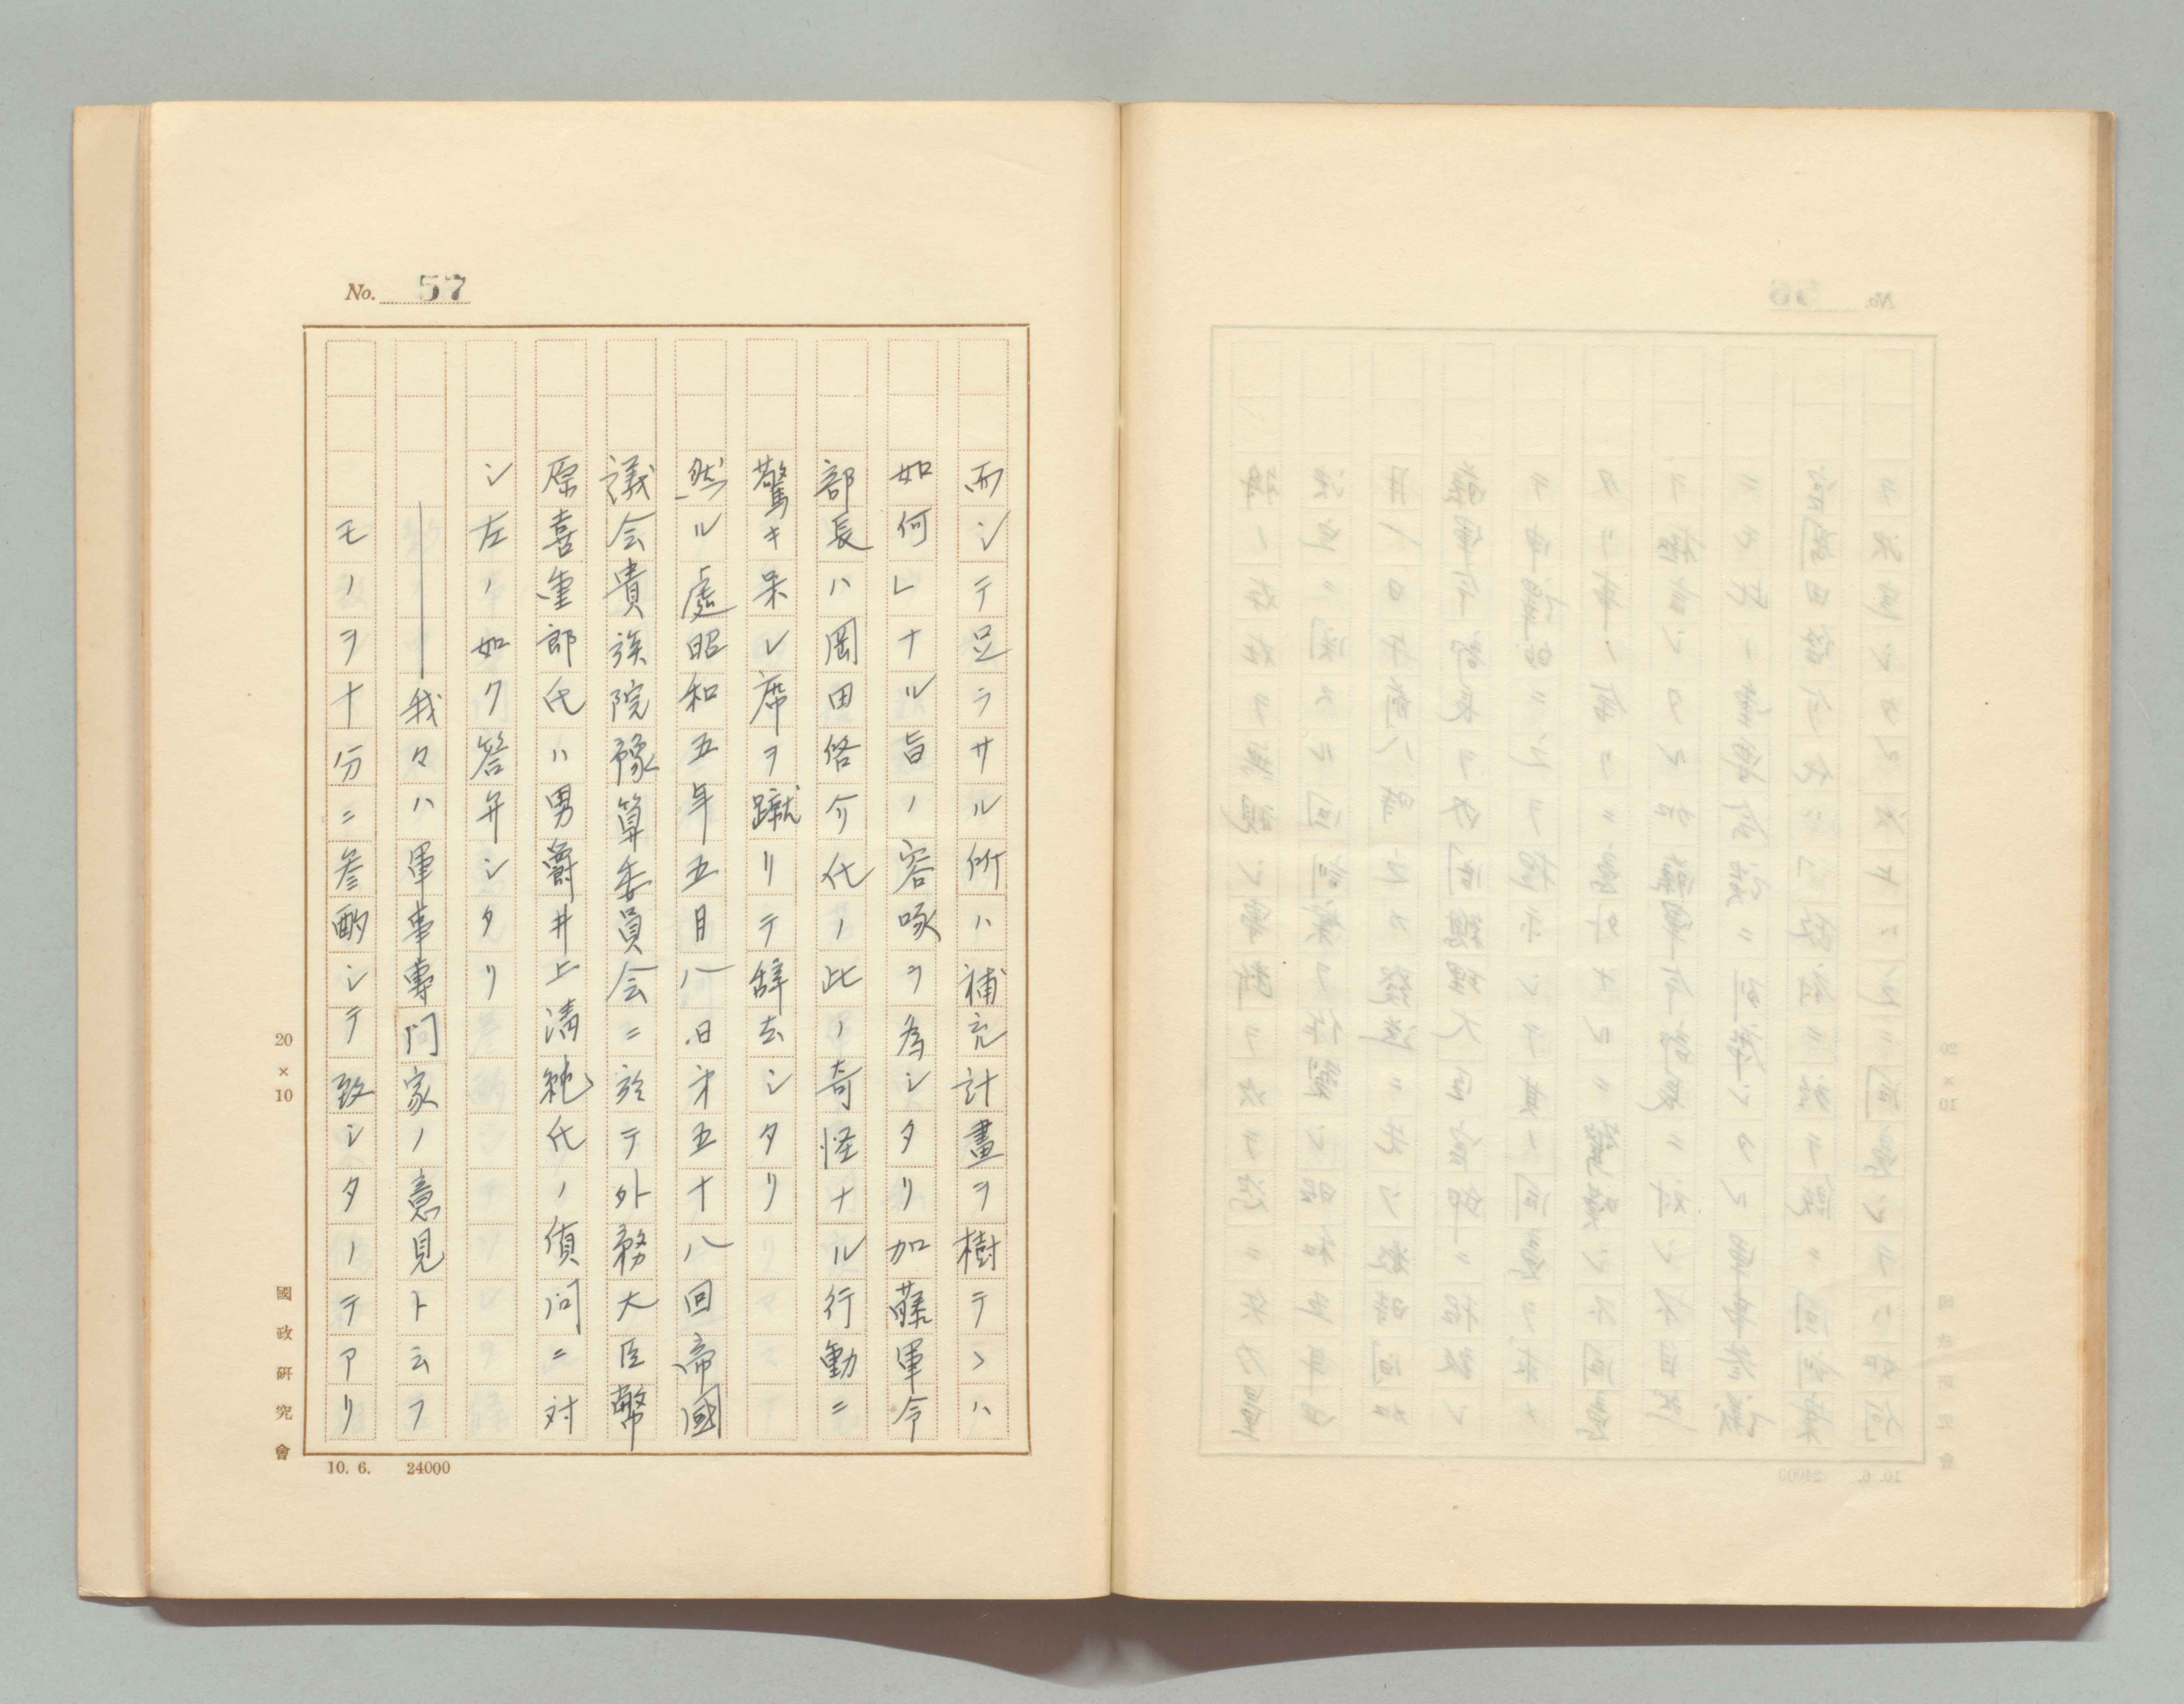 No. 57
而シテ足ラサル所ハ補充計畫ヲ樹テヽハ
如何レナル旨ノ容喙ヲ為シタリ加藤軍令
部長ハ岡田啓介氏ノ此ノ奇怪ナル行動ニ
驚キ呆レ席ヲ蹴リテ辞去シタリ
然ル處昭和五年五月八日才五十八回帝國
議会貴族院豫算委員会ニ於テ外務大臣幣
原喜重郎氏ハ男爵井上清純氏ノ質问ニ対
シ左ノ如ク答弁シタリ
――我々ハ軍事専門家ノ意見ト云フ
モノヲ十分ニ参酌シテ致シタノテアリ
20×10
國政研究會
10. 6. 24000